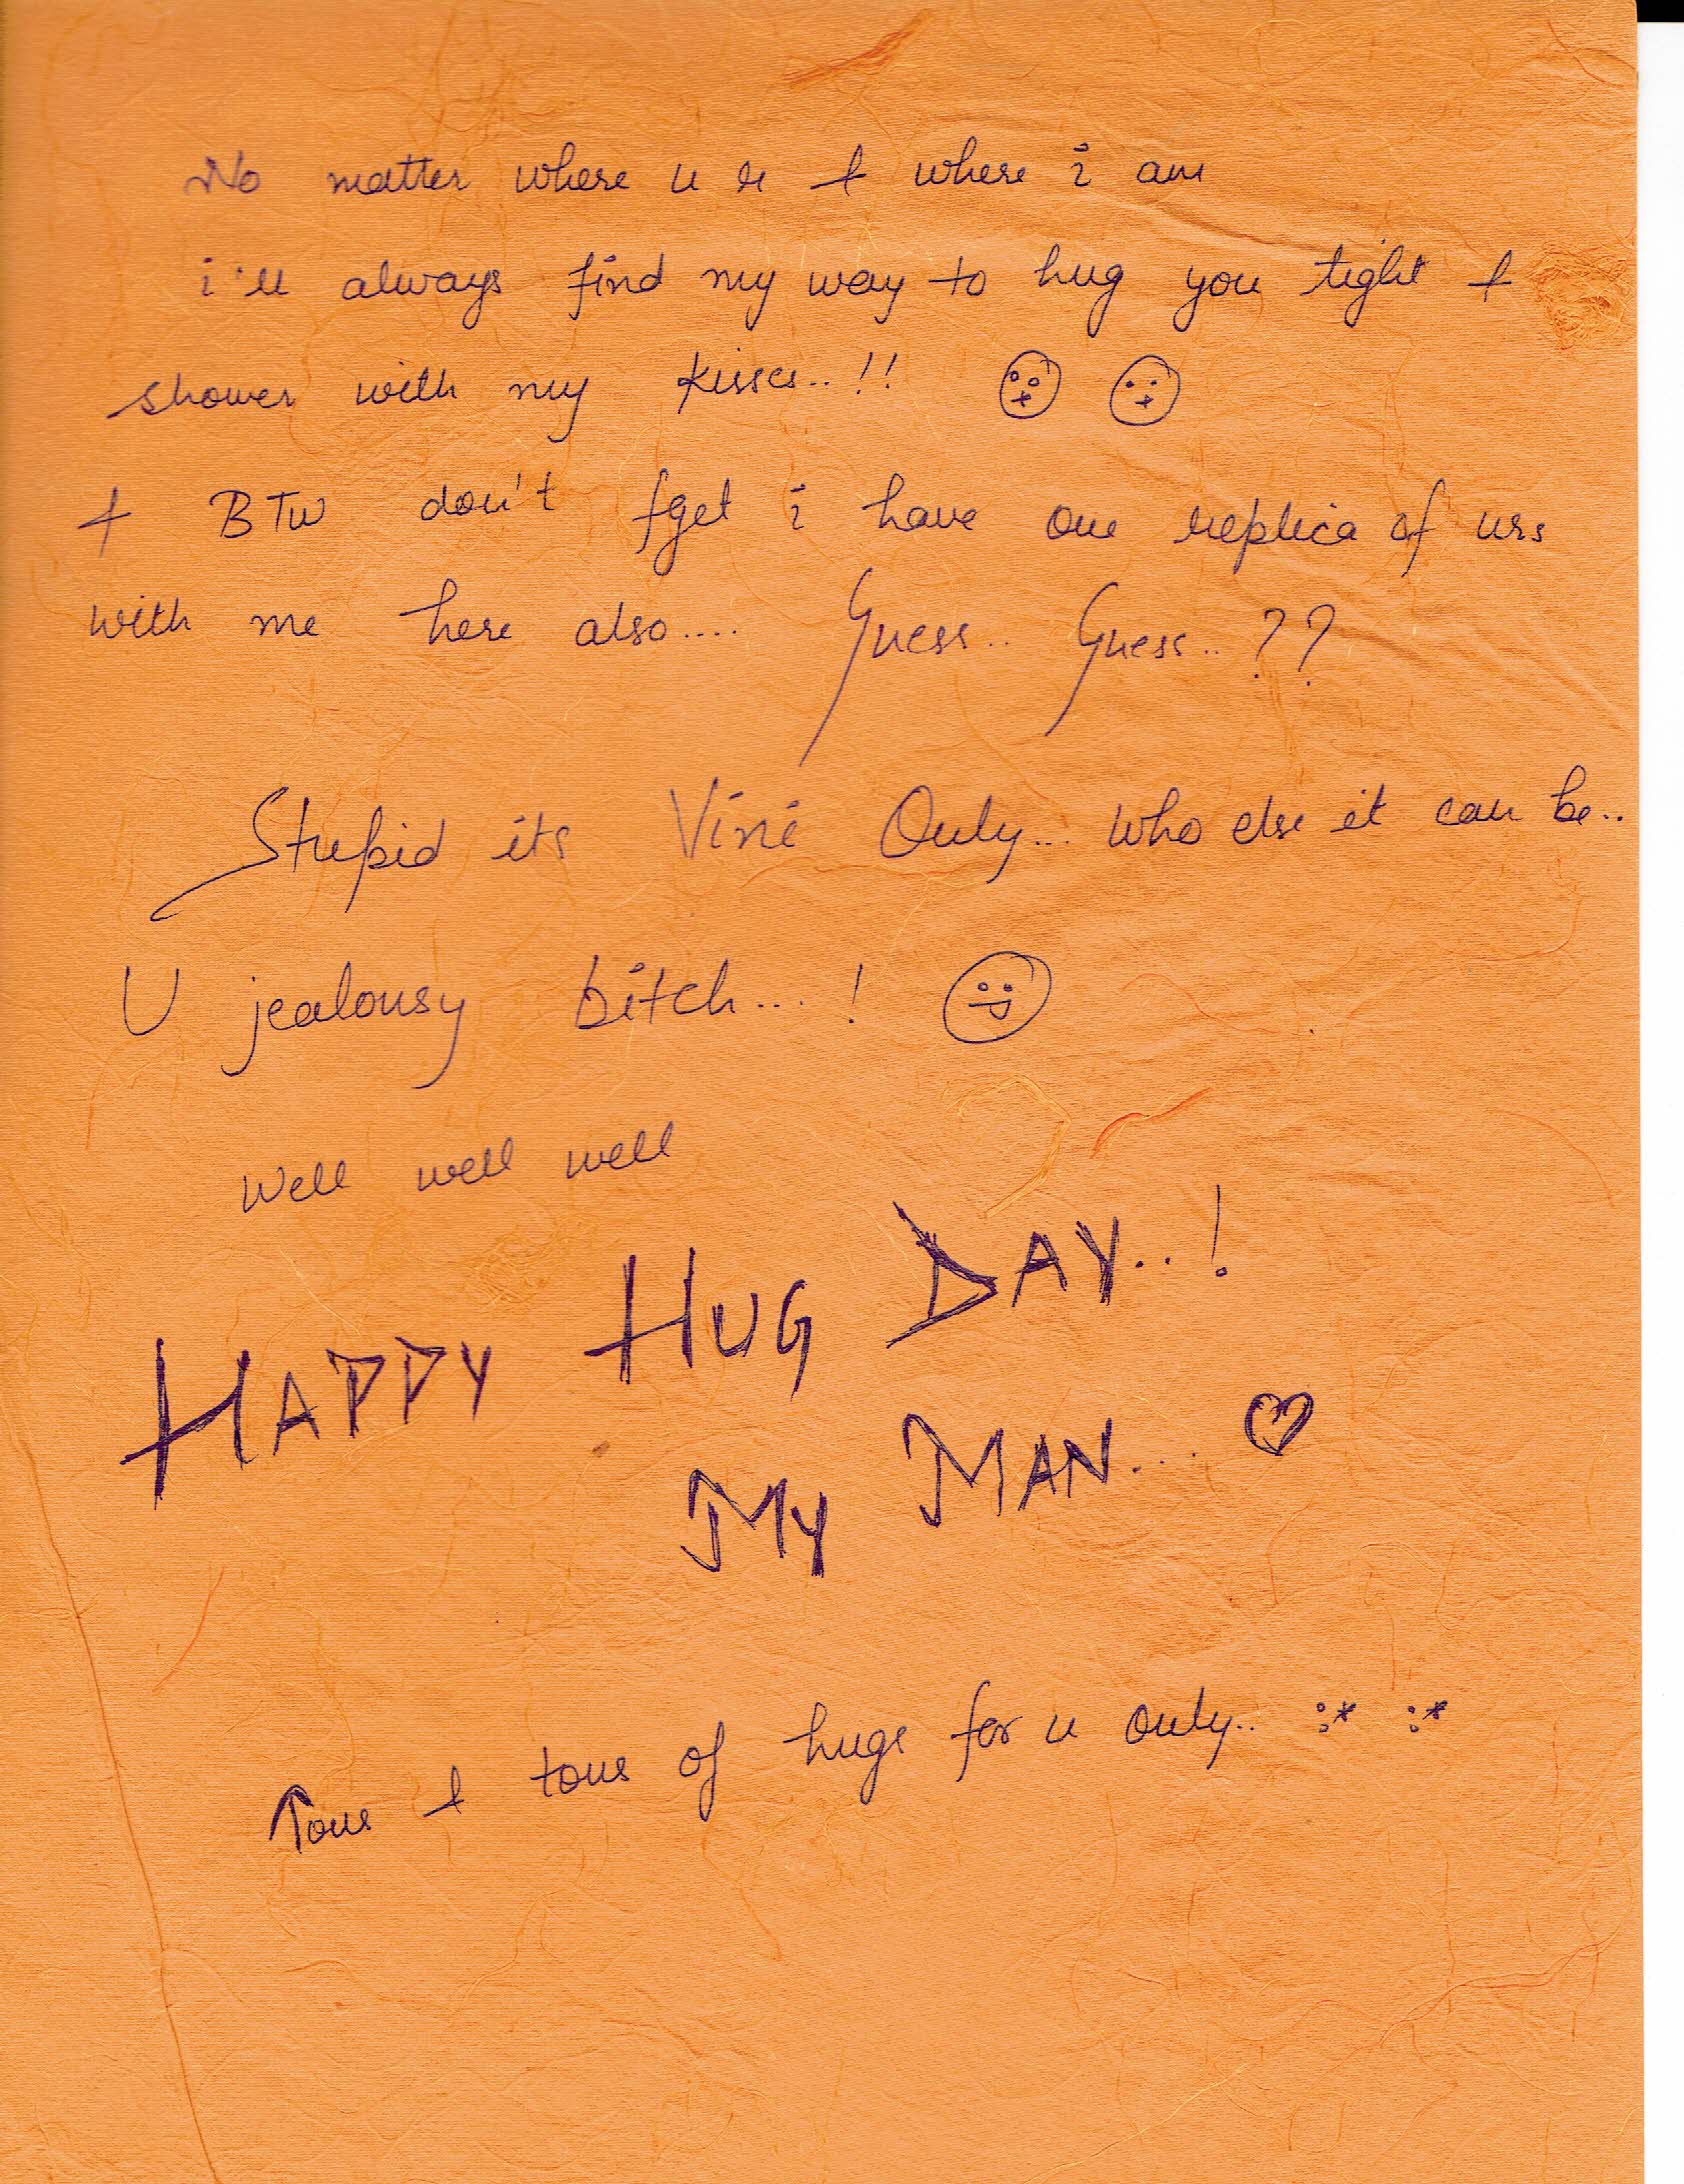 No matter where u r & where i am
i'll always find my way to hug you tight &
shower with my kisses..!!
& BTW don't fget i have one replica of urs
with me here also.... Guess.. Guess..??
Stupid its Vini Only... who else it can be..
U jealousy bitch...!
Well well well
HAPPY HUG DAY..!
MY MAN... ♡
Tons & tons of hugs for u only.. :* :*